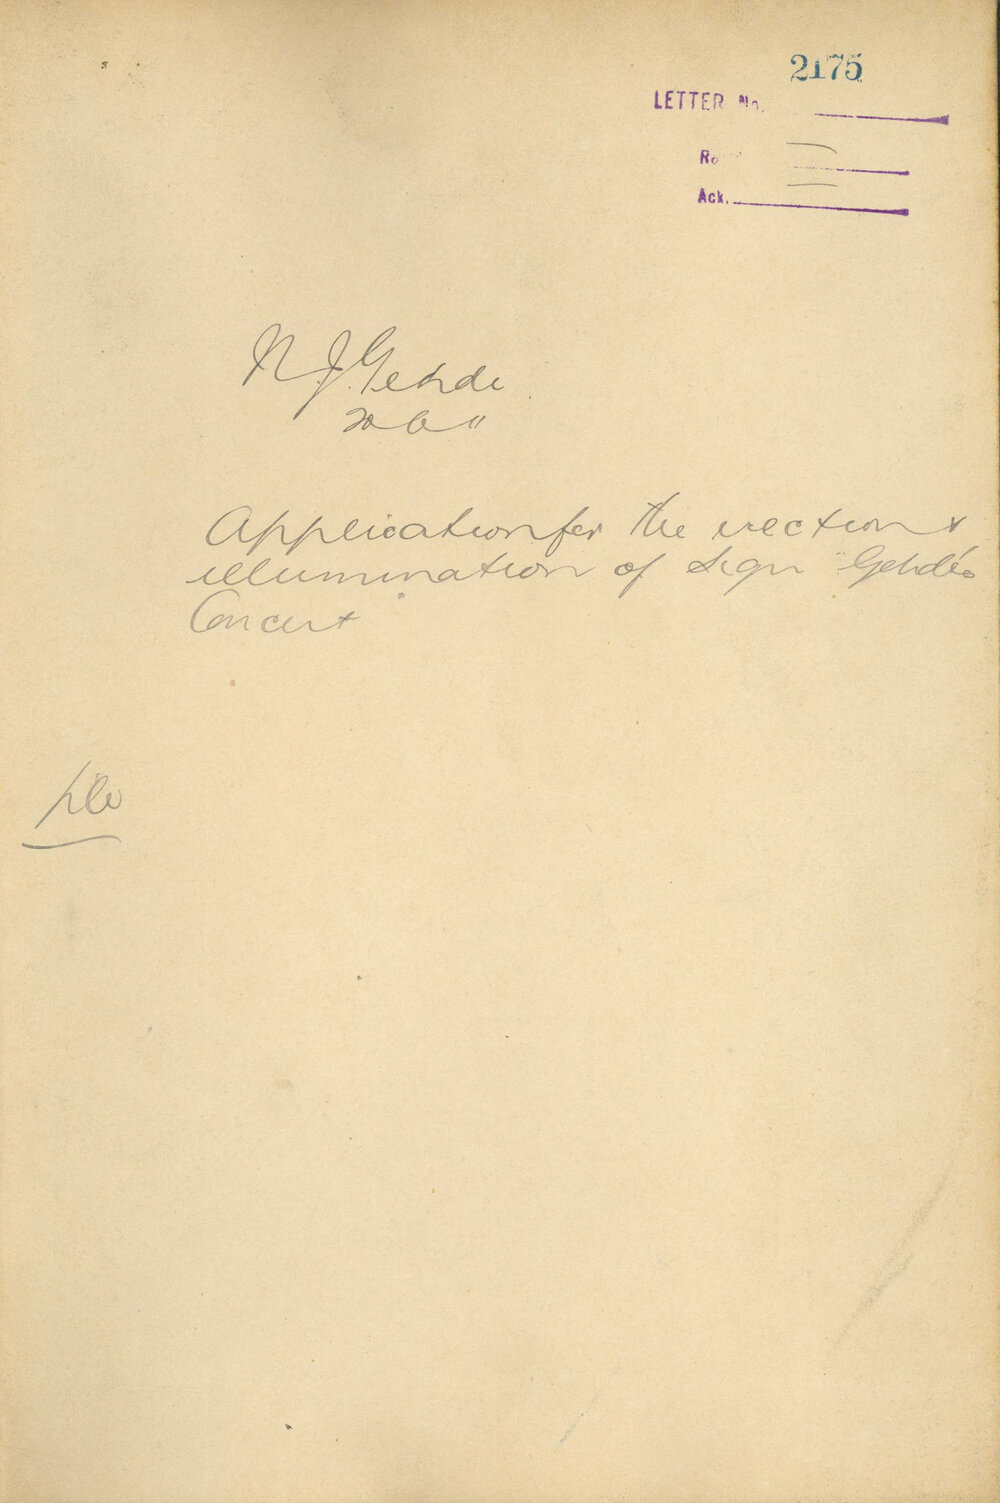 2175
LETTER No.
Re
Ack.
N. J. Gehde
Application for the erection &
illumination of sign "Gehde's
Concert"
file